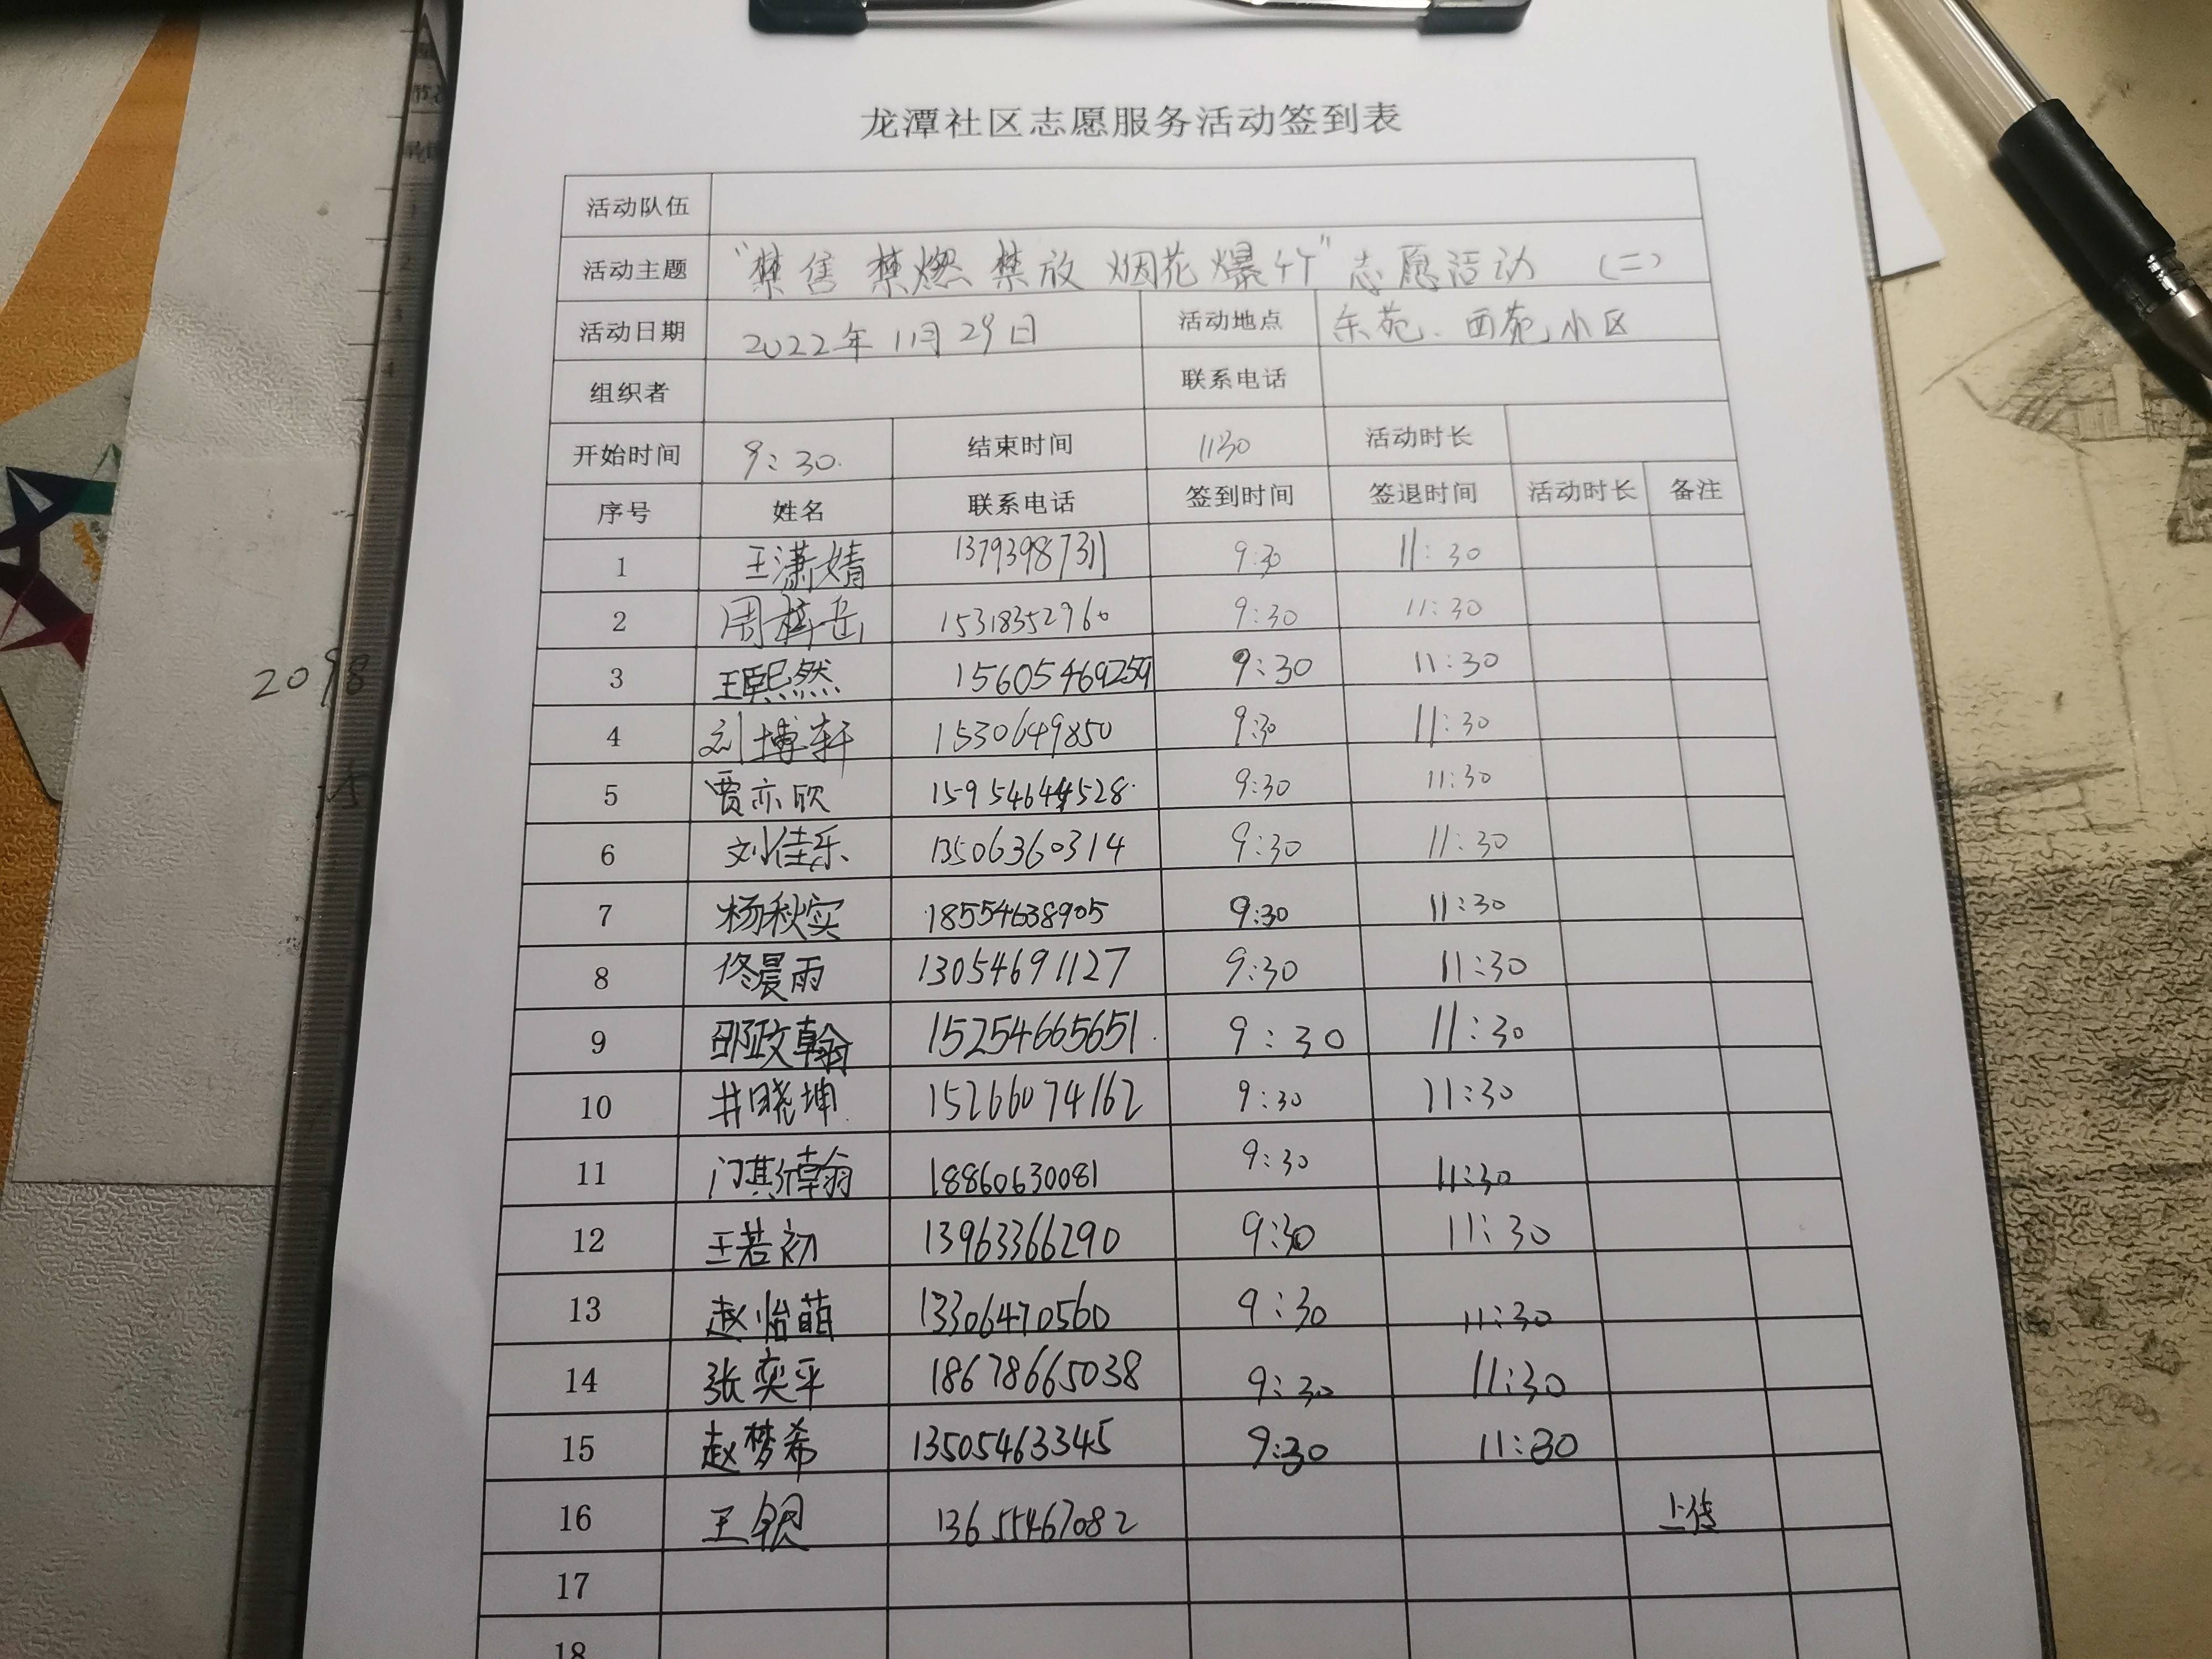 龙潭社区志愿服务活动签到表
活动队伍
活动主题 “禁售禁燃禁放烟花爆竹”志愿活动 (二)
活动日期 2022年11月29日 活动地点 东苑、西苑小区
组织者 联系电话
开始时间 9:30. 结束时间 11:30 活动时长
序号 姓名 联系电话 签到时间 签退时间 活动时长 备注
1 王潇婧 13793987311 9:30 11:30
2 周梓岳 15318352960 9:30 11:30
3 王熙然 15605469259 9:30 11:30
4 刘博轩 1530649850 9:30 11:30
5 贾亦欣 15954644528 9:30 11:30
6 刘佳乐 13506360314 9:30 11:30
7 杨秋实 18554638905 9:30 11:30
8 佟晨雨 13054691127 9:30 11:30
9 邵政翰 15254665651 9:30 11:30
10 井晓坤 15266074162 9:30 11:30
11 门淇翰 18860630081 9:30 11:30
12 王若初 13963366290 9:30 11:30
13 赵怡萌 13306470560 9:30 11:30
14 张奕平 18678665038 9:30 11:30
15 赵梦希 13505463345 9:30 11:30
16 王 13655467082 上传
17
18
2098